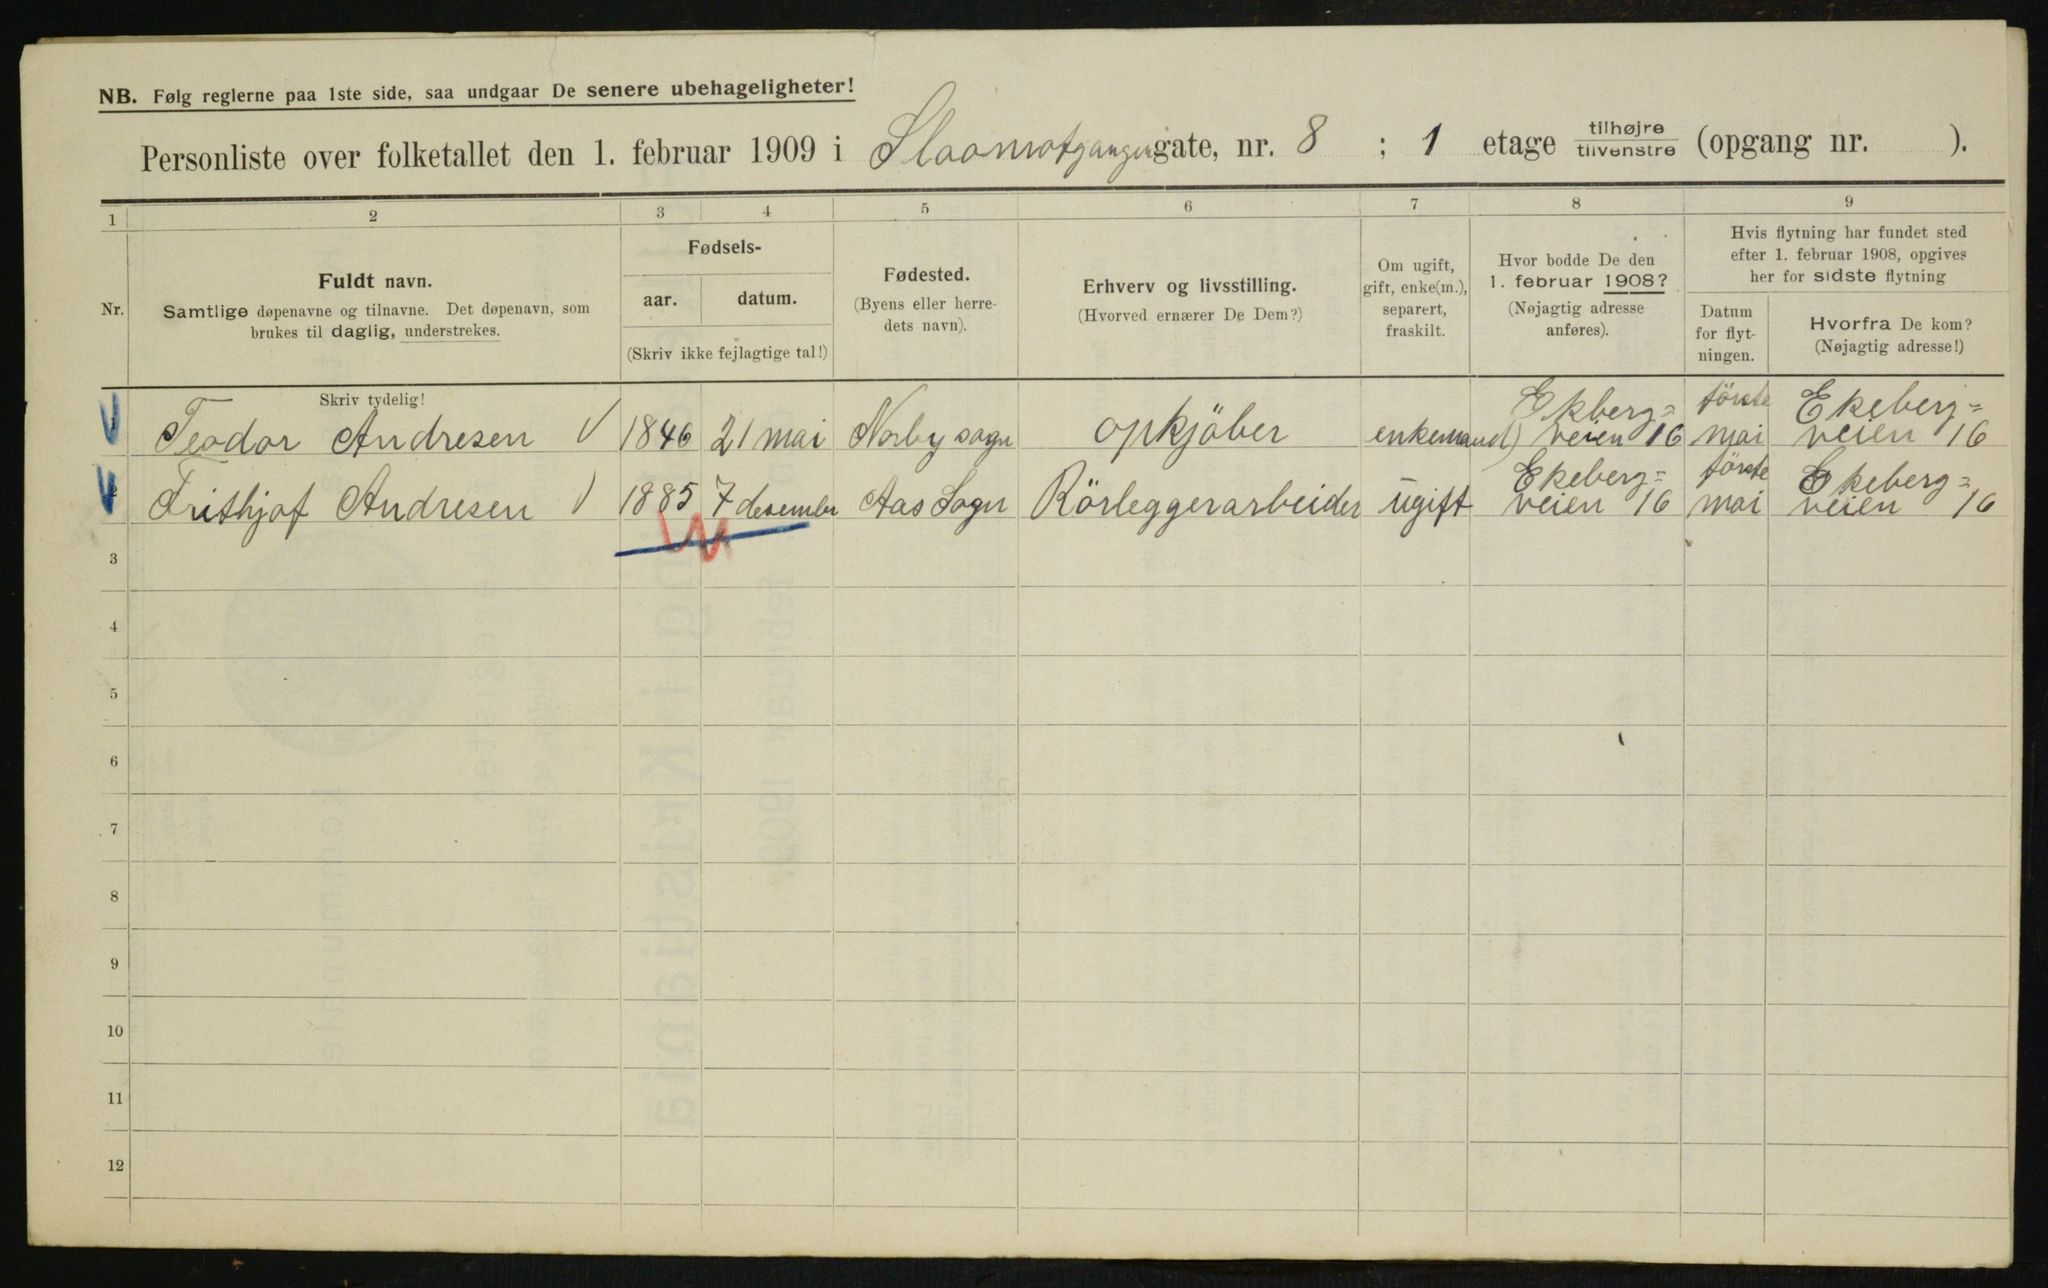 NB. Følg reglerne paa 1ste side, saa undgaar De senere ubehageligheter!
Personliste over folketallet den 1. februar 1909 i gate, nr. 8 ; 1 etage tilhøjre tilvenstre (opgang nr. ).
1 2 3 4 5 6 7 8 9
Nr.
Fuldt navn.
Samtlige døpenavne og tilnavne. Det døpenavn, som
brukes til daglig, understrekes.
Skriv tydelig!
Fødsels-
aar. datum.
(Skriv ikke fejlagtige tal!)
Fødested.
(Byens eller herre-
dets navn).
Erhverv og livsstilling.
(Hvorved ernærer De Dem?)
Om ugift,
gift, enke(m.),
separert,
fraskilt.
Hvor bodde De den
1. februar 1908?
(Nøjagtig adresse
anføres).
Hvis flytning har fundet sted
efter 1. februar 1908, opgives
her for sidste flytning
Datum
for flyt-
ningen.
Hvorfra De kom?
(Nøjagtig adresse!)
1 Teodor Andresen 1846 21 mai Norby sogn opkjöber enkemand Ekberg=veien 16 förste mai Ekeberg=veien 16
2 Frithjof Andresen 1885 7 desember Aas Sogn Rörleggerarbeider ugift Ekeberg=veien 16 förste mai Ekeberg=veien 16
3
4
5
6
7
8
9
10
11
12